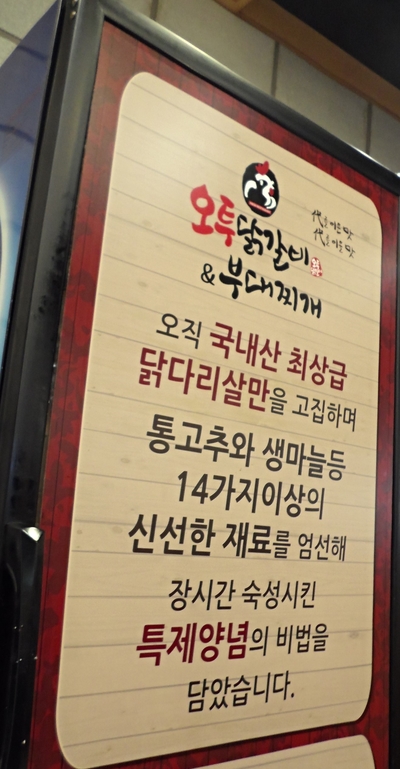 오투닭갈비
代를 이은 맛
代를 이을 맛
&부대찌개
오직 국내산 최상급
닭다리살만을 고집하며
통고추와 생마늘등
14가지이상의
신선한 재료를 엄선해
장시간 숙성시킨
특제양념의 비법을
담았습니다.